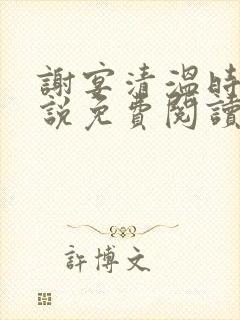 謝宴清溫時
說免費閱讀
許博文